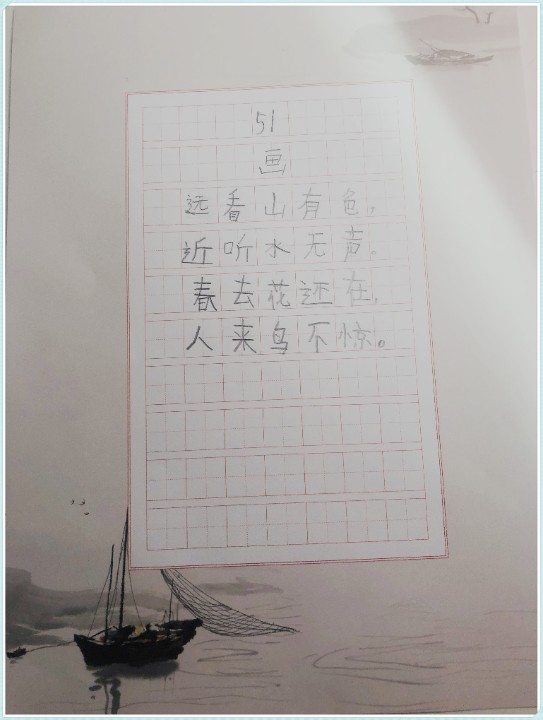 51
画
远看山有色。
近听水无声。
春去花还在,
人来鸟不惊。